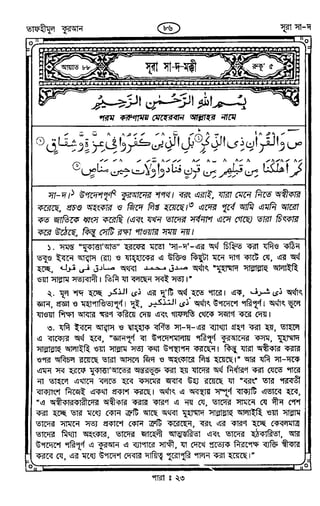 তাফহীমুল কুরআন ৮৬ সূরা সা-দ
আয়াত ৮৮ সূরা সা-দ-মক্কী রুকূ' ৫
بِسْمِ اللهِ الرَّحْمٰنِ الرَّحِيْمِ
পরম করুণাময় মেহেরবান আল্লাহর নামে
صٓ وَالْقُرْاٰنِ ذِي الذِّكْرِ ۝ بَلِ الَّذِيْنَ كَفَرُوْا فِيْ عِزَّةٍ وَّشِقَاقٍ ۝
كَمْ اَهْلَكْنَا مِنْ قَبْلِهِمْ مِّنْ قَرْنٍ فَنَادَوْا وَّلَاتَ حِيْنَ مَنَاصٍ ۝
সা-দ।১ উপদেশপূর্ণ২ কুরআনের শপথ। বরং এরাই, যারা মেনে নিতে অস্বীকার
করেছে, প্রচণ্ড অহংকার ও জিদে লিপ্ত হয়েছে।৩ এদের পূর্বে আমি এমনি আরো
কত জাতিকে ধ্বংস করেছি (এবং যখন তাদের সর্বনাশ এসে গেছে) তারা চিৎকার
করে উঠেছে, কিন্তু সেটি রক্ষা পাওয়ার সময় নয়।
১. সমস্ত "মুকাত্তা'আত" হরফের মতো 'সা-দ'-এর অর্থ চিহ্নিত করা যদিও কঠিন
তবুও ইবনে আব্বাস (রা) ও যাহ্‌হাকের এ উক্তিও কিছুটা মনে দাগ কাটে যে, এর অর্থ
হচ্ছে صادق فى قوله অথবা صدق محمد অর্থাৎ "মুহাম্মাদ সাল্লাল্লাহু আলাইহি
ওয়া সাল্লাম সত্যবাদী। তিনি যা বলছেন সবই সত্য।"
২. মূল শব্দ হচ্ছে ذى الذكر এর দু'টি অর্থ হতে পারে। এক, ذى شرف অর্থাৎ
জ্ঞান, প্রজ্ঞা ও মহাপাণ্ডিত্যপূর্ণ। দুই, ذى التذكير অর্থাৎ উপদেশে পরিপূর্ণ। অর্থাৎ ভুলে
যাওয়া শিক্ষা আবার স্মরণ করিয়ে দেয় এবং গাফলতি থেকে সজাগ করে দেয়।
৩. যদি ইবনে আব্বাস ও যাহ্‌হাক বর্ণিত সা-দ-এর ব্যাখ্যা গ্রহণ করা হয়, তাহলে
এ বাক্যের অর্থ হবে, "জ্ঞানপূর্ণ বা উপদেশমালায় পরিপূর্ণ কুরআনের কসম, মুহাম্মাদ
সাল্লাল্লাহু আলাইহি ওয়া সাল্লাম সত্য কথা উপস্থাপন করছেন। কিন্তু যারা অস্বীকার করার
ওপর অবিচল রয়েছে তারা আসলে জিদ ও অহংকারে লিপ্ত হয়েছে।" আর যদি সা-দকে
এমন সব হরফে মুকাত্তা'আতের অন্তরভুক্ত করা হয় যাদের অর্থ নির্ধারণ করা যেতে পারে
না তাহলে এখানে বলতে হবে কসমের জবাব উহ্য রয়েছে যা "বরং" তার পরবর্তী
বাক্যাংশ নিজেই একথা প্রকাশ করছে। অর্থাৎ এ অবস্থায় সম্পূর্ণ বাক্যটি এভাবে হবে,
"এ অস্বীকারকারীদের অস্বীকার করার কারণ এ নয় যে, তাদের সামনে যে দীন পেশ
করা হচ্ছে তার মধ্যে কোন ত্রুটি আছে অথবা মুহাম্মাদ সাল্লাল্লাহু আলাইহি ওয়া সাল্লাম
তাদের সামনে সত্য প্রকাশে কোন ত্রুটি করেছেন, বরং এর কারণ হচ্ছে কেবলমাত্র
তাদের মিথ্যা অহংকার, তাদের জাহেলী আত্মম্ভরিতা এবং তাদের হঠকারিতা, আর
উপদেশে পরিপূর্ণ এ কুরআন এ ব্যাপারে সাক্ষী, যা দেখে প্রত্যেক নিরপেক্ষ ব্যক্তি স্বীকার
করবে যে, এর মধ্যে উপদেশ দেবার দায়িত্ব পুরোপুরি পালন করা হয়েছে।"
পারা : ২৩